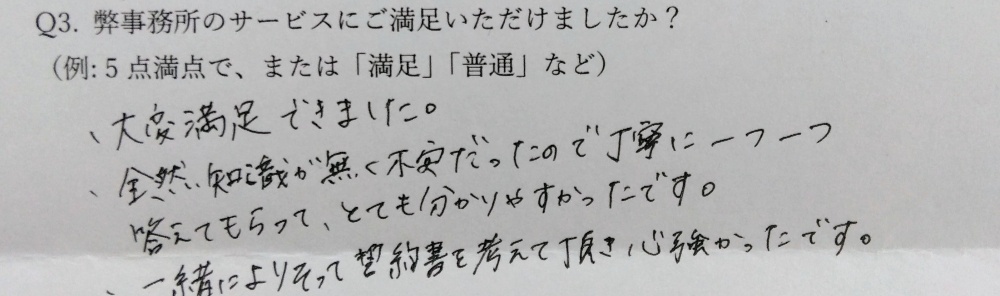 Q3. 弊事務所のサービスにご満足いただけましたか？
（例: 5 点満点で、または「満足」「普通」など）
、大変満足できました。
、全然、知識が無く不安だったので丁寧に一つ一つ
答えてもらって、とても分かりやすかったです。
、一緒によりそって契約書を考えて頂き心強かったです。